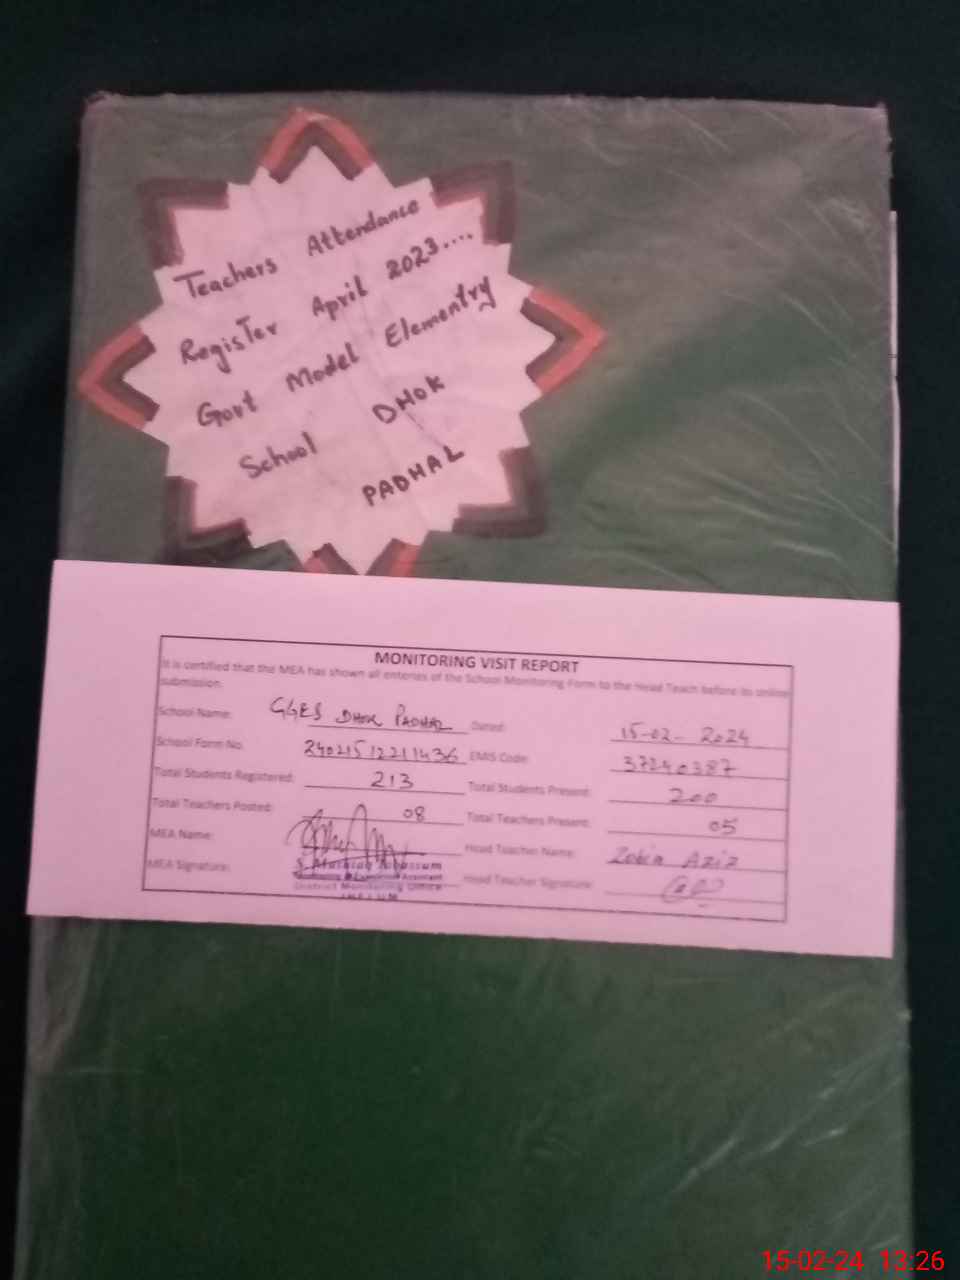 Teachers Attendance
Register April 2023....
Govt Model Elementry
School DHOK
PADHAL
MONITORING VISIT REPORT
It is certified that the MEA has shown all enteries of the School Monitoring Form to the Head Teach before its online
submission.
School Name: GGES DHOK PADHAL Dated: 15-02-2024
School Form No. 24021512211436 EMIS Code: 37240387
Total Students Registered: 213 Total Students Present: 200
Total Teachers Posted: 08 Total Teachers Present: 05
MEA Name: Head Teacher Name: Zobia Aziz
MEA Signature: Head Teacher Signature:
District Monitoring Office
15-02-24 13:26